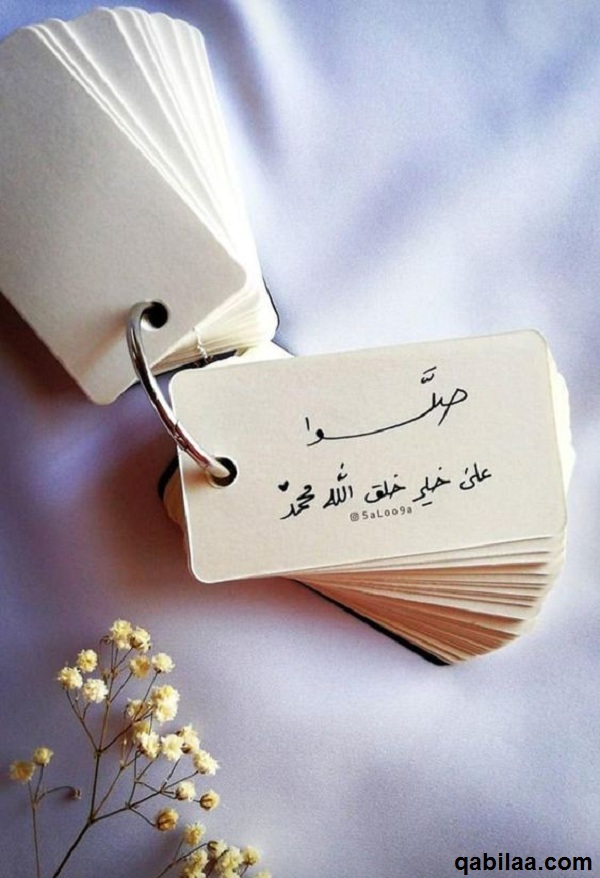 صلَّوا
على خير خلق اللّٰه محمد
5aLoo9a
qabilaa.com